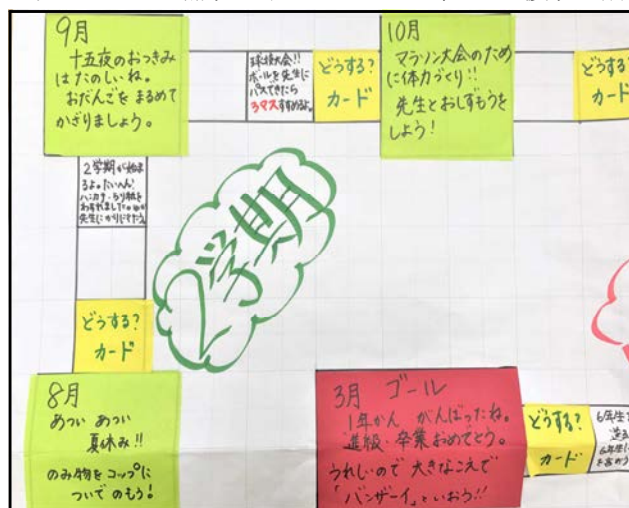 9月
十五夜のおつきみ
はたのしいね。
おだんごを まるめて
かざりましょう。
球技大会!!
ボールを先生に
パスできたら
3マスすすめるよ。
どうする?
カード
10月
マラソン大会のため
に体力づくり!!
先生とおしずもうを
しよう!
どうする?
カード
2学期が始ま
るよ。たいへん!
ハンカチ・ちり紙を
わすれました
先生に
2学期
どうする?
カード
8月
あつい あつい
夏休み!!
のみ物をコップに
ついでのもう!
3月 ゴール
1年かん がんばったね。
進級・卒業おめでとう。
うれしいので 大きなこえで
「バンザーイ」といおう!!
どうする?
カード
6年生
6年生に